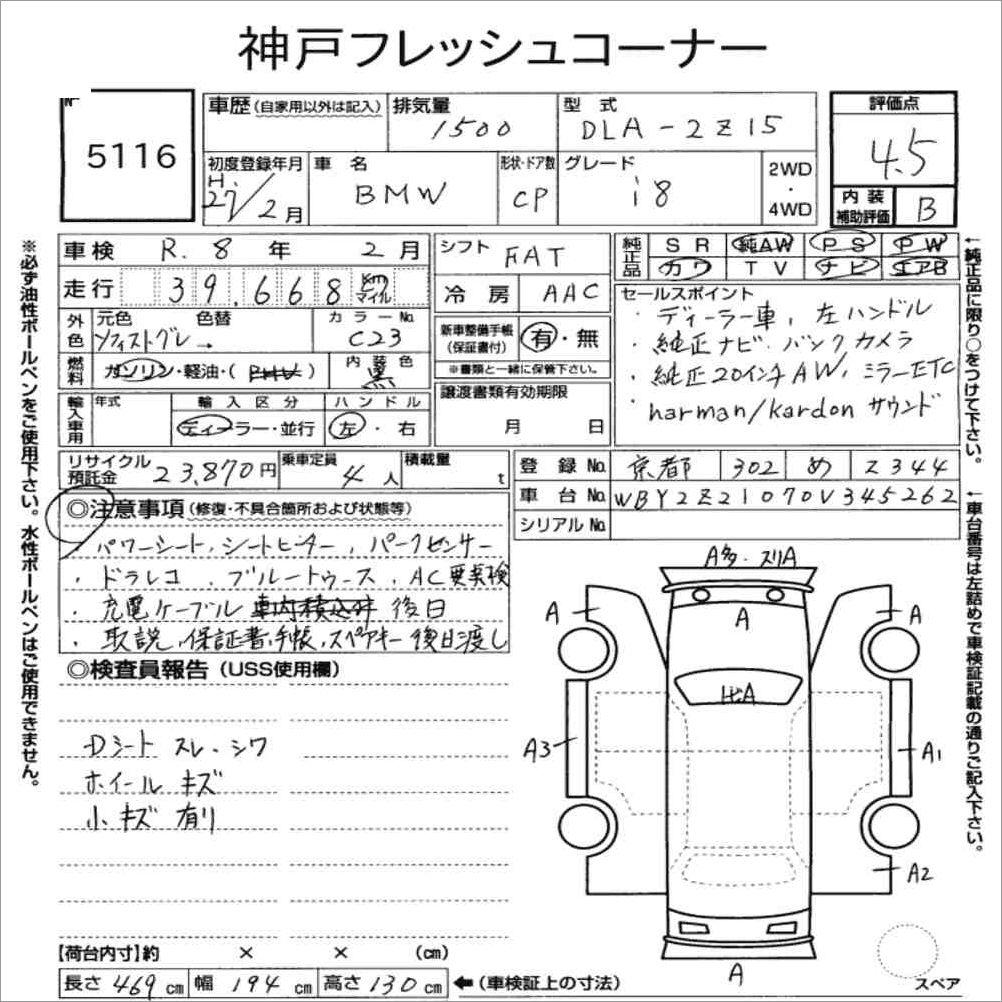 神戸フレッシュコーナー
№
5116
車歴(自家用以外は記入)
排気量
1500
型式
DLA-2Z15
評価点
4.5
初度登録年月
H.
27/2月
車名
BMW
形状・ドア数
CP
グレード
i8
2WD
・
4WD
内装
補助評価
B
車検 R.8年 2月
シフト FAT
純正品
SR 純AW PS PW
カワ TV ナビ エアB
走行 39,668 km マイル
冷房 AAC
セールスポイント
・ディーラー車, 左ハンドル
・純正ナビ・バックカメラ
・純正20インチAW, ミラーETC
・harman/kardon サウンド
外色
元色 色替 カラーNo.
ソフィストグレ→ C23
新車整備手帳
(保証書付)
有・無
※書類と一緒に保管下さい。
燃料
ガソリン・軽油・( )
内装色
黒
譲渡書類有効期限
月 日
輸入車用
年式
輸入区分
ハンドル
ディーラー・並行
左・右
リサイクル
預託金
23,870円
乗車定員 4人
積載量 t
登録No. 京都 302 め 2344
車台No. WBY2Z21070V345262
シリアルNo.
◎注意事項(修復・不具合箇所および状態等)
・パワーシート, シートヒーター, パークセンサー
・ドラレコ, ブルートゥース, AC要点検
・充電ケーブル 車内積込済 後日
・取説, 保証書, 手帳, スペアキー後日渡し
◎検査員報告(USS使用欄)
Dシート スレ・シワ
ホイール キズ
小キズ 有り
A多・スリA
A
A
A
A
A3
A1
A2
A
スペア
【荷台内寸】約 × × (cm)
長さ 469cm 幅 194cm 高さ 130cm ←(車検証上の寸法)
※必ず油性ボールペンをご使用下さい。水性ボールペンはご使用できません。
←純正品に限り○をつけて下さい。
←車台番号は左詰めで車検証記載の通りご記入下さい。